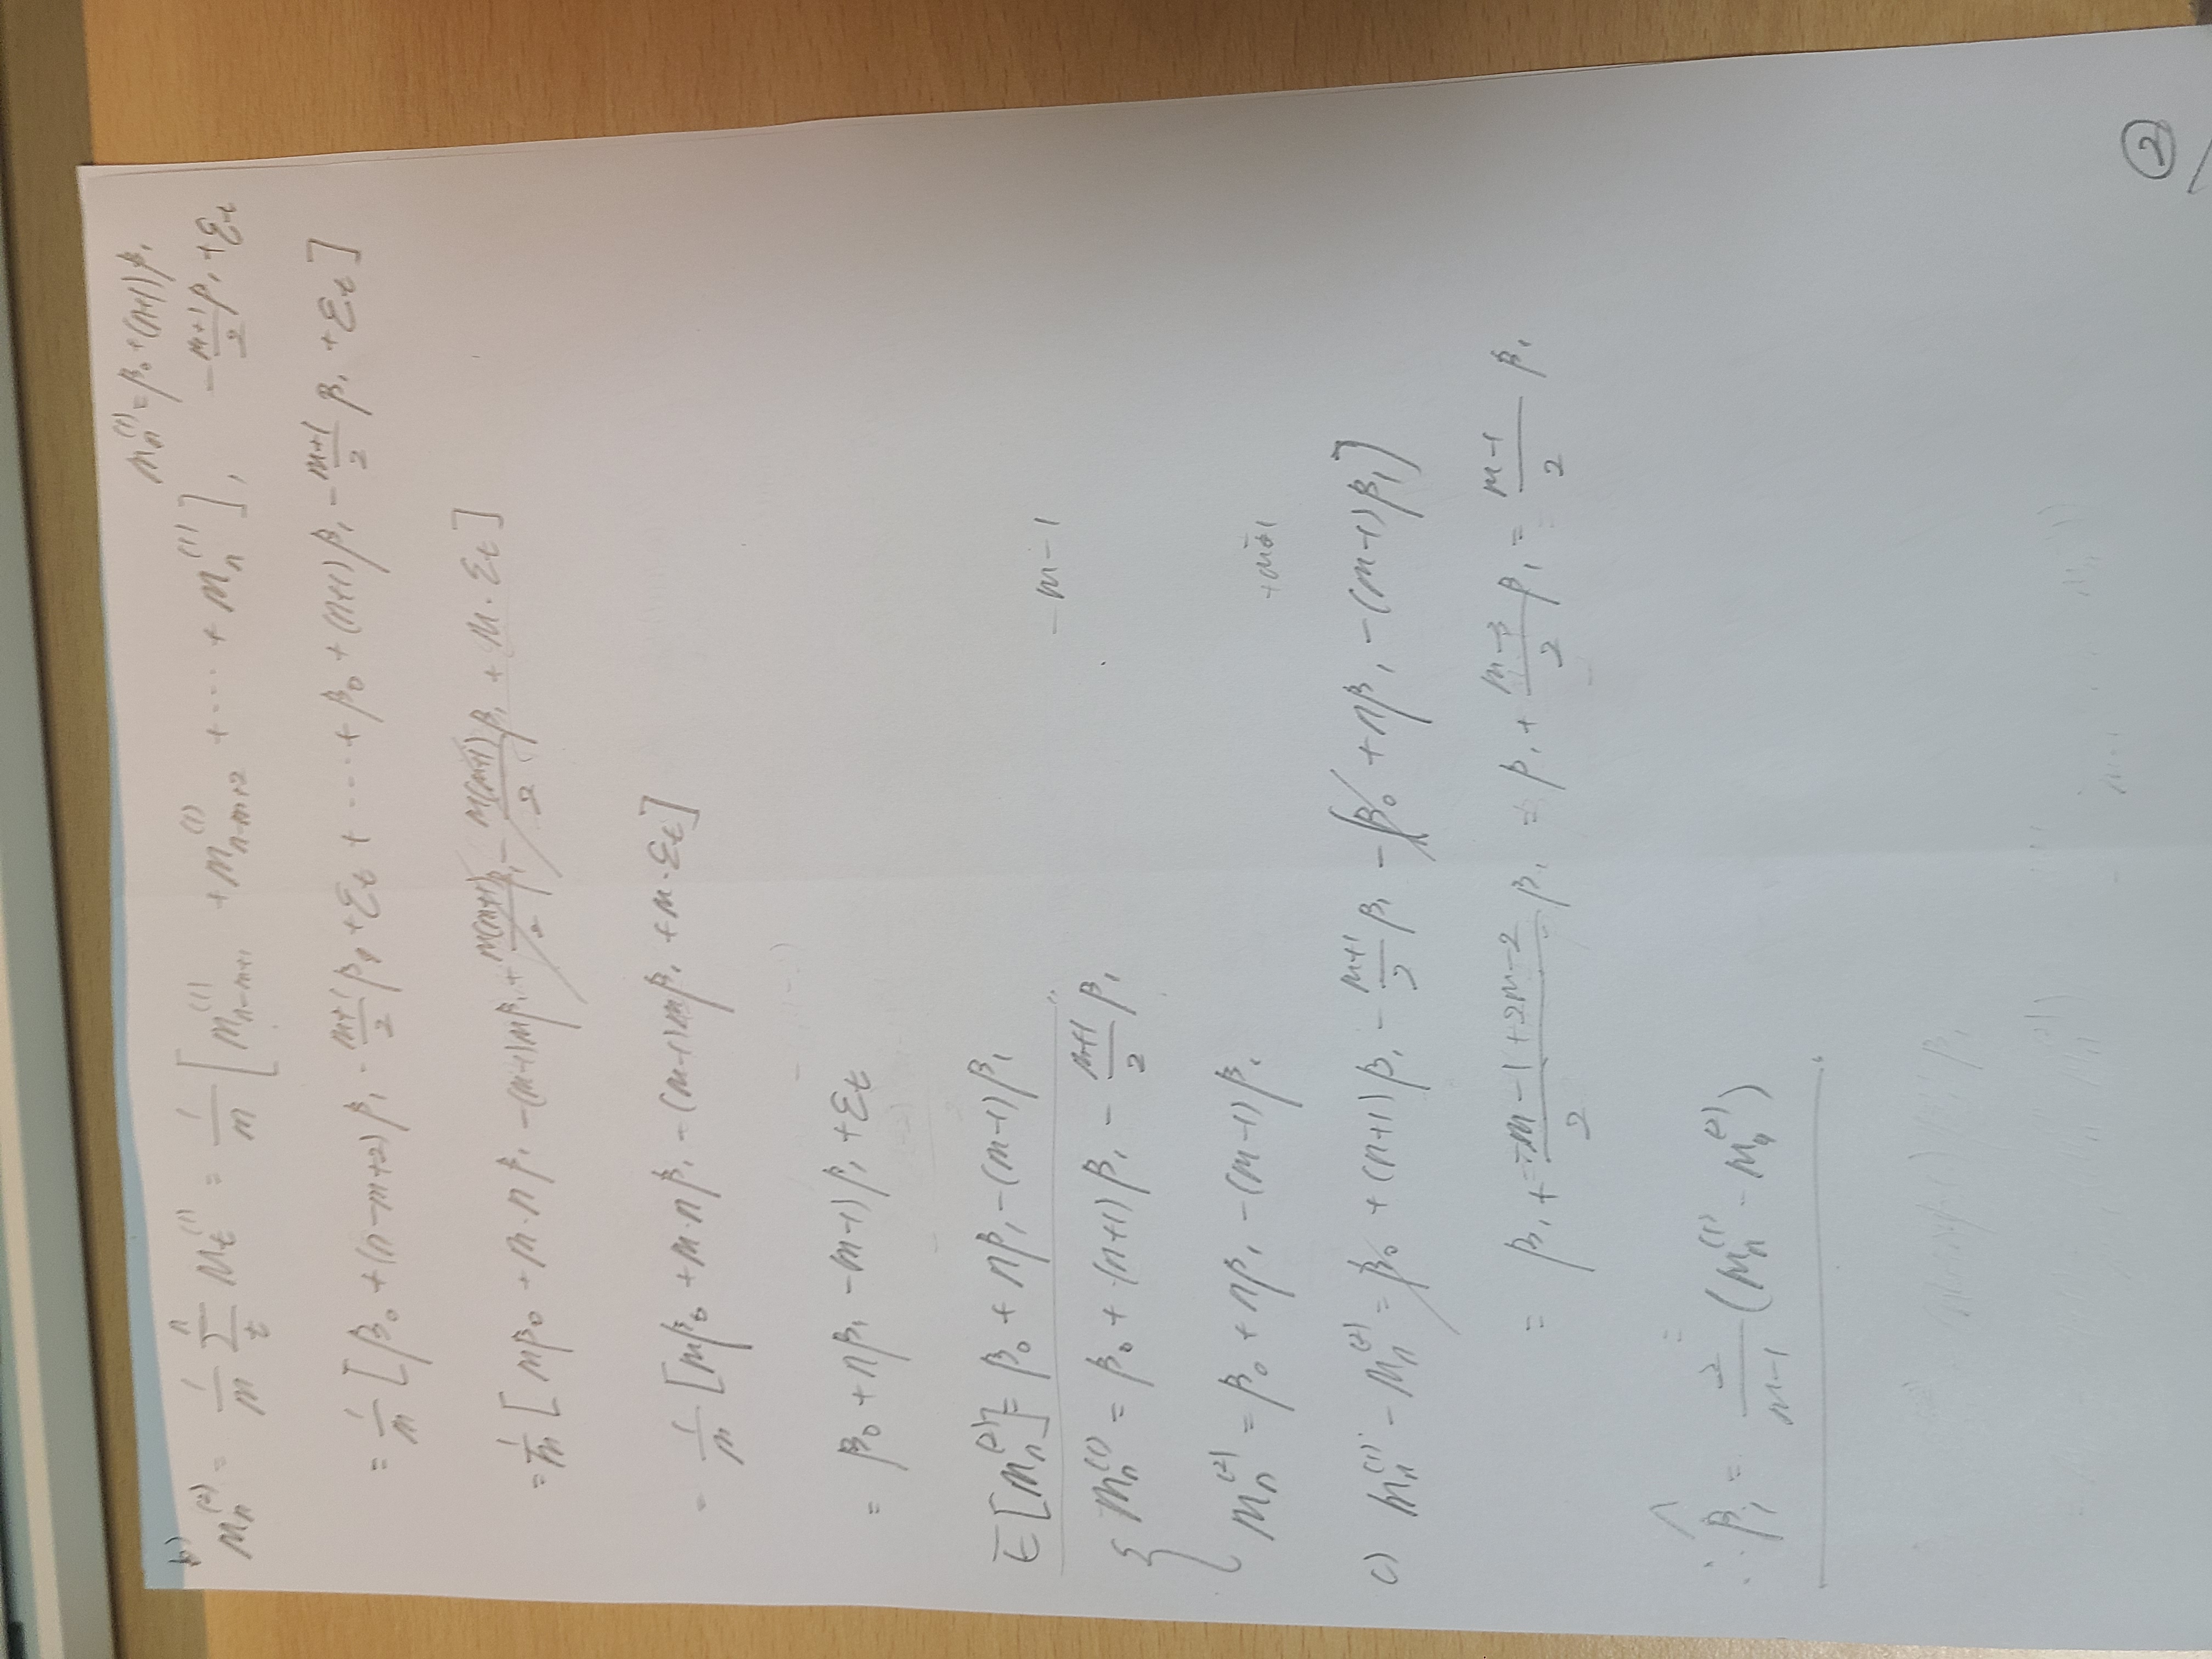 b)
Mₙ⁽¹⁾ = β₀ + (n+1)β₁
Mₙ⁽²⁾ = 1/m Σₜⁿ Mₜ⁽¹⁾ = 1/m [Mₙ₋ₘ₊₁⁽¹⁾ + Mₙ₋ₘ₊₂⁽¹⁾ + ⋯ + Mₙ⁽¹⁾], - (m+1)/2 β₁ + εₜ
= 1/m [β₀ + (n-m+2)β₁ - (m+1)/2 β₁ + εₜ + ⋯ + β₀ + (n+1)β₁ - (m+1)/2 β₁ + εₜ]
= 1/m [mβ₀ + m·nβ₁ - (m-1)mβ₁ + m(m+1)/2 β₁ - m(m+1)/2 β₁ + m·εₜ]
= 1/m [mβ₀ + m·nβ₁ - (m-1)mβ₁ + m·εₜ]
= β₀ + nβ₁ - (m-1)β₁ + εₜ
E[Mₙ⁽²⁾] = β₀ + nβ₁ - (m-1)β₁
-m-1
{ Mₙ⁽¹⁾ = β₀ + (n+1)β₁ - (m+1)/2 β₁
Mₙ⁽²⁾ = β₀ + nβ₁ - (m-1)β₁
c) Mₙ⁽¹⁾ - Mₙ⁽²⁾ = β₀ + (n+1)β₁ - (m+1)/2 β₁ - [β₀ + nβ₁ - (m-1)β₁]
= β₁ + (-m-1+2m-2)/2 β₁ = β₁ + (m-3)/2 β₁ = (m-1)/2 β₁
∴ β̂₁ = 2/(m-1) (Mₙ⁽¹⁾ - Mₙ⁽²⁾)
②